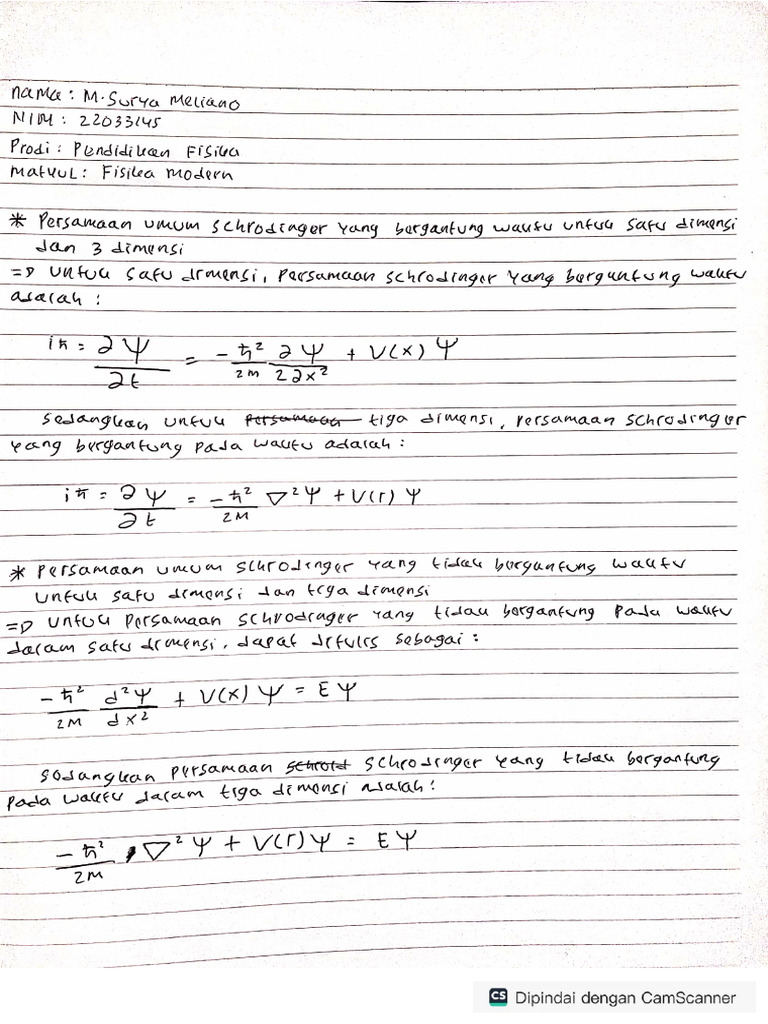 nama : M. Surya Meliano
NIM : 22033145
Prodi : Pendidikan Fisika
Matkul : Fisika Modern
* Persamaan umum schrodinger yang bergantung waktu untuk satu dimensi
dan 3 dimensi
=> Untuk satu dimensi, persamaan schrodinger yang bergantung waktu
adalah :
iħ = ∂Ψ/∂t = -ħ²/2m ∂Ψ/2∂x² + V(x) Ψ
sedangkan untuk persamaan tiga dimensi, persamaan schrodinger
yang bergantung pada waktu adalah :
iħ = ∂Ψ/∂t = -ħ²/2M ∇²Ψ + V(r) Ψ
* Persamaan umum schrodinger yang tidak bergantung waktu
untuk satu dimensi dan tiga dimensi
=> untuk persamaan schrodinger yang tidak bergantung pada waktu
dalam satu dimensi, dapat ditulis sebagai :
-ħ²/2M d²Ψ/dx² + V(x) Ψ = EΨ
sedangkan persamaan schrod schrodinger yang tidak bergantung
pada waktu dalam tiga dimensi adalah :
-ħ²/2M ∇²Ψ + V(r)Ψ = EΨ
CS Dipindai dengan CamScanner